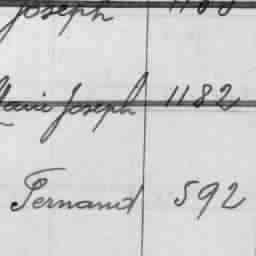 Joseph
Marie Joseph 1182
Fernand 592